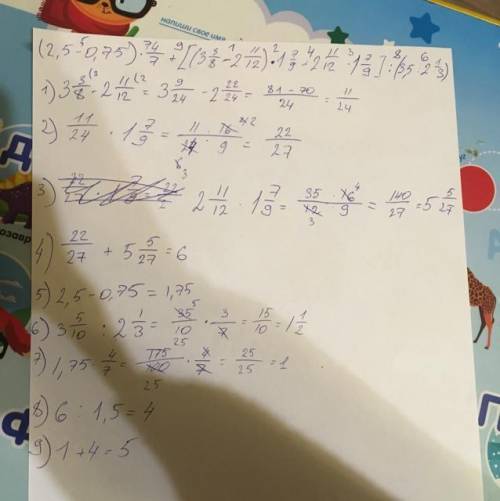 напиши свое имя
(2,5-0,75)·74/7+[(3 3/8-2 11/12)·1 7/9+2 11/12·1 7/9]:(3,5:2 1/3)
1) 3 3/8-2 11/12=3 9/24-2 22/24=81-70/24=11/24
2) 11/24·1 7/9=11·16/24·9=22/27
3) 2 11/12·1 7/9=35·16/12·9=140/27=5 5/27
4) 22/27+5 5/27=6
5) 2,5-0,75=1,75
6) 3 5/10:2 1/3=35/10·3/7=15/10=1 1/2
7) 1,75·4/7=175/100·4/7=25/25=1
8) 6:1,5=4
9) 1+4=5